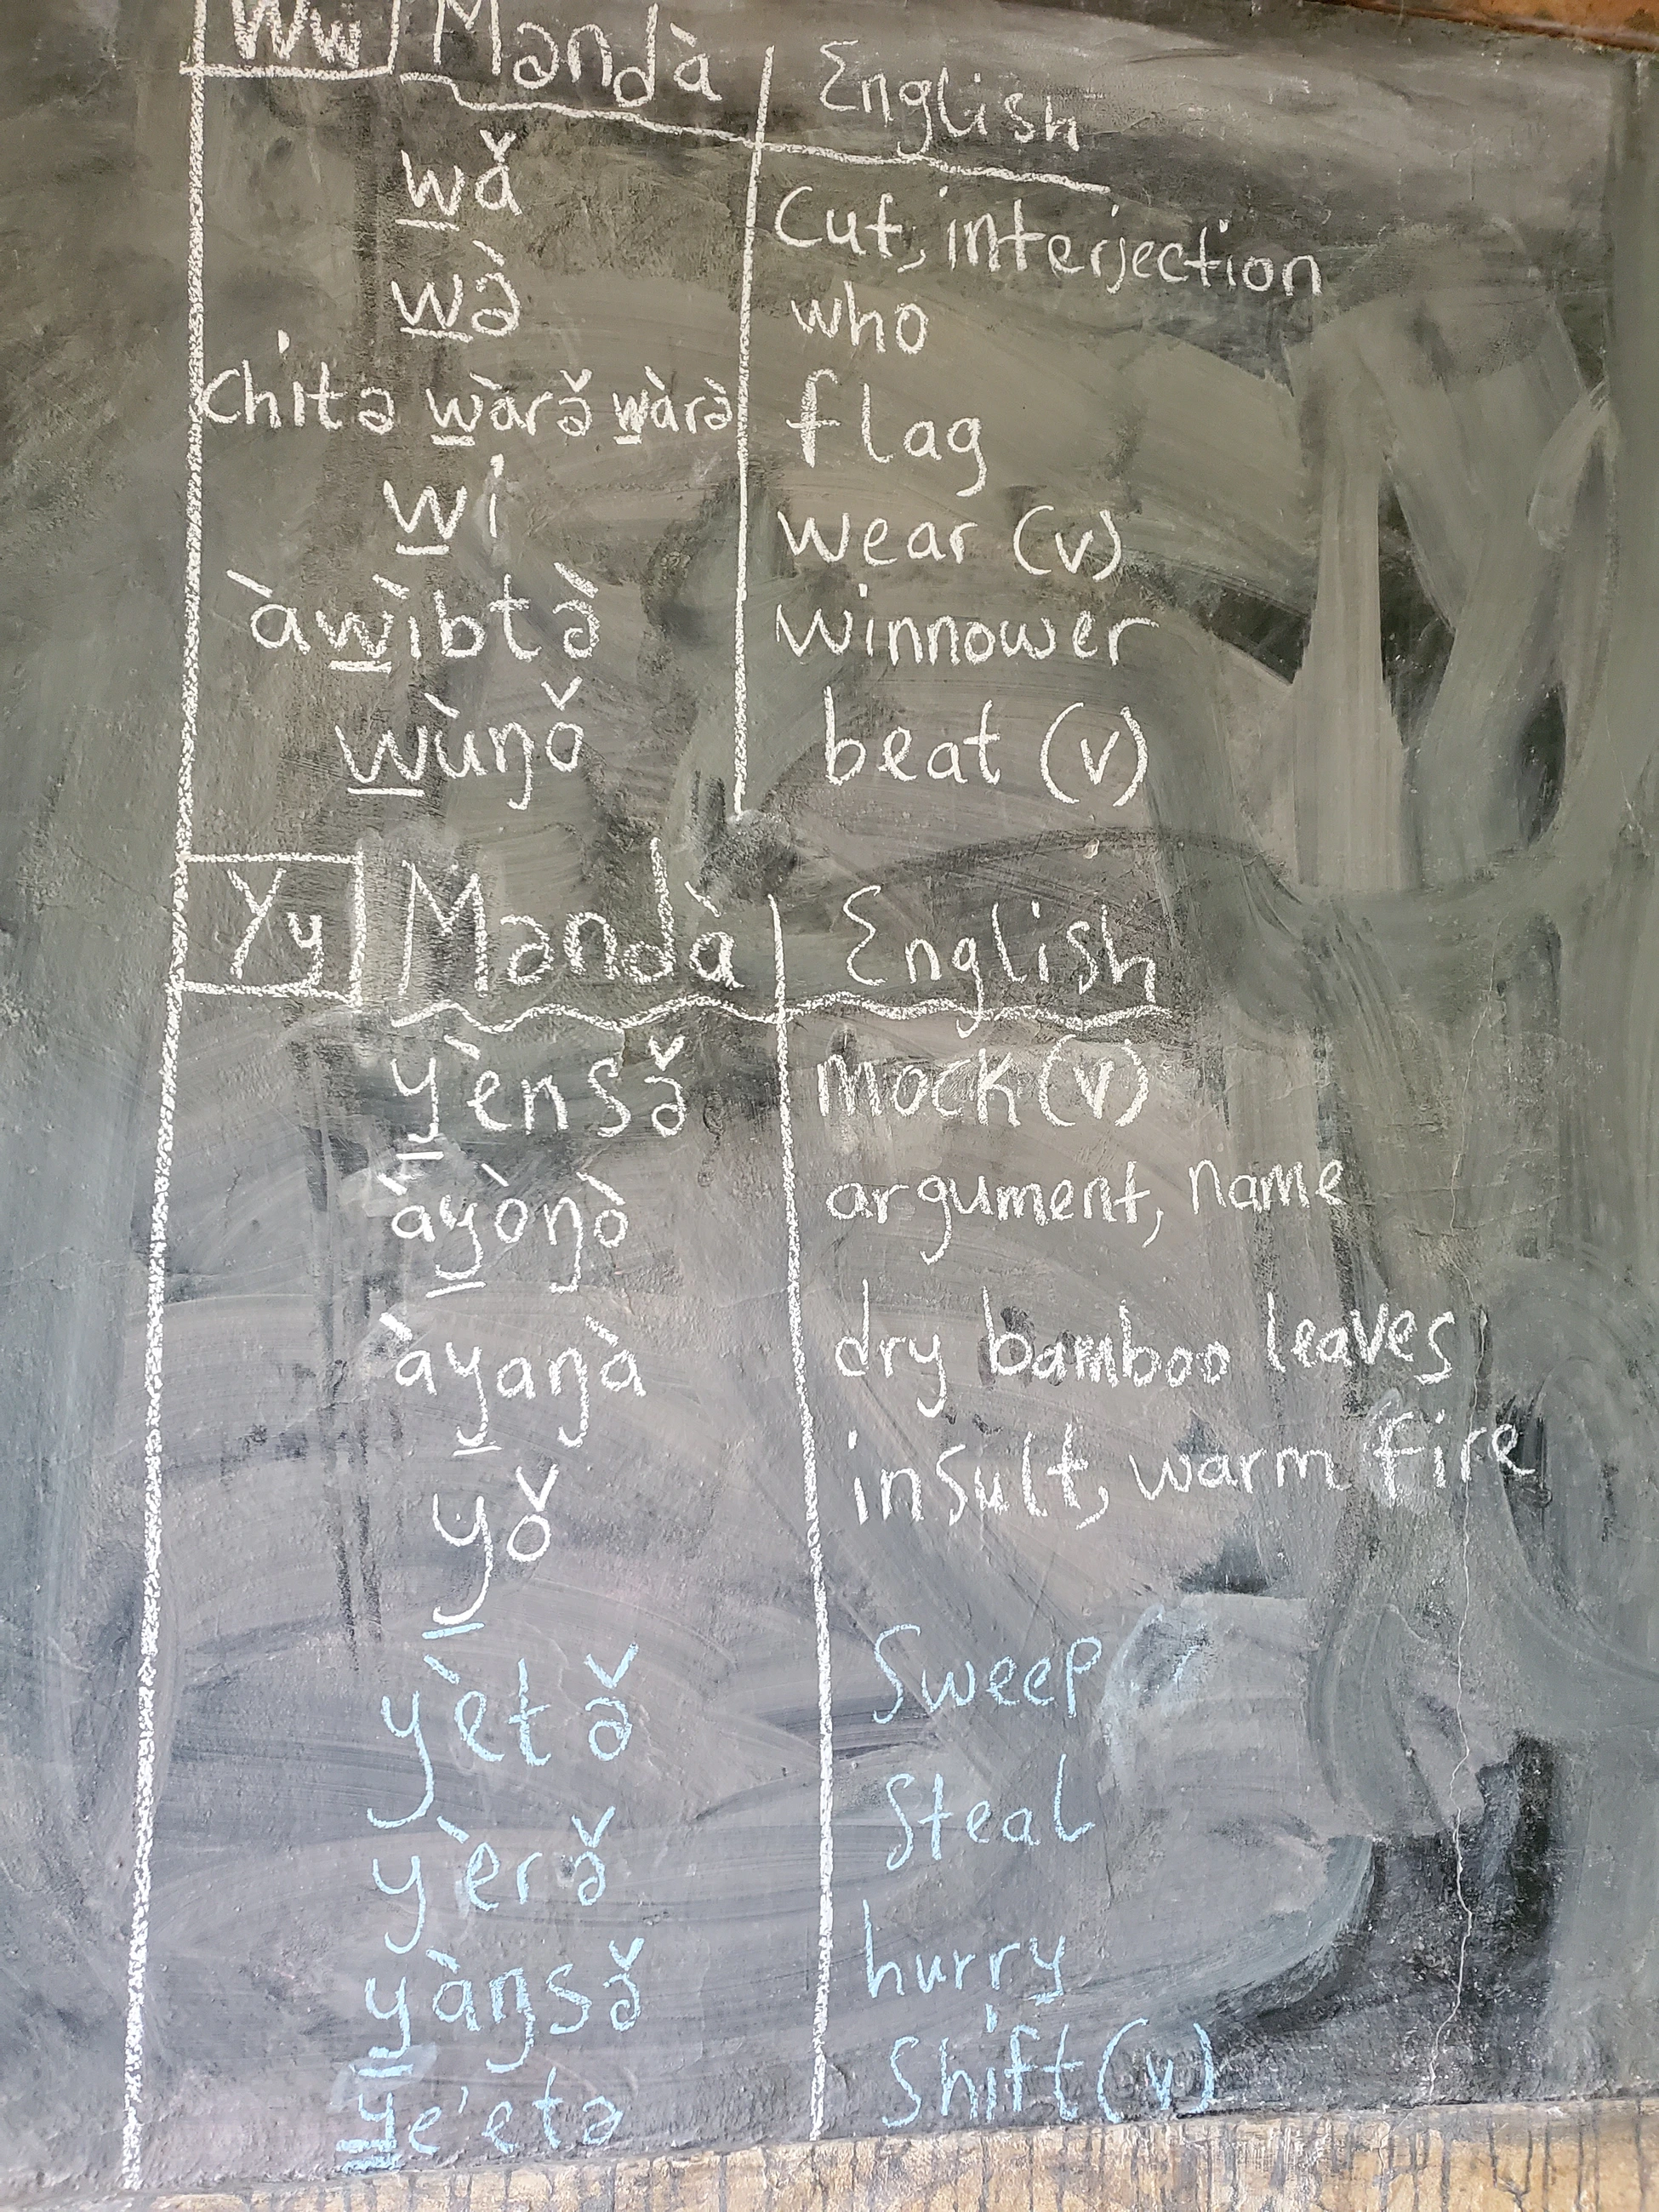 Ww Məndà English
wǎ Cut, interjection
wə̀ who
chitə wàrə̌ wàrə̀ flag
wi wear (v)
àwìbtə̀ winnower
wùŋǒ beat (v)
Yy Məndà English
yènsə̌ mock (v)
àyòŋò argument, name
àyaŋà dry bamboo leaves
yǒ insult, warm fire
yètə̌ Sweep
yèrə̌ Steal
yàŋsə̌ hurry
Ye'etə Shift (v)